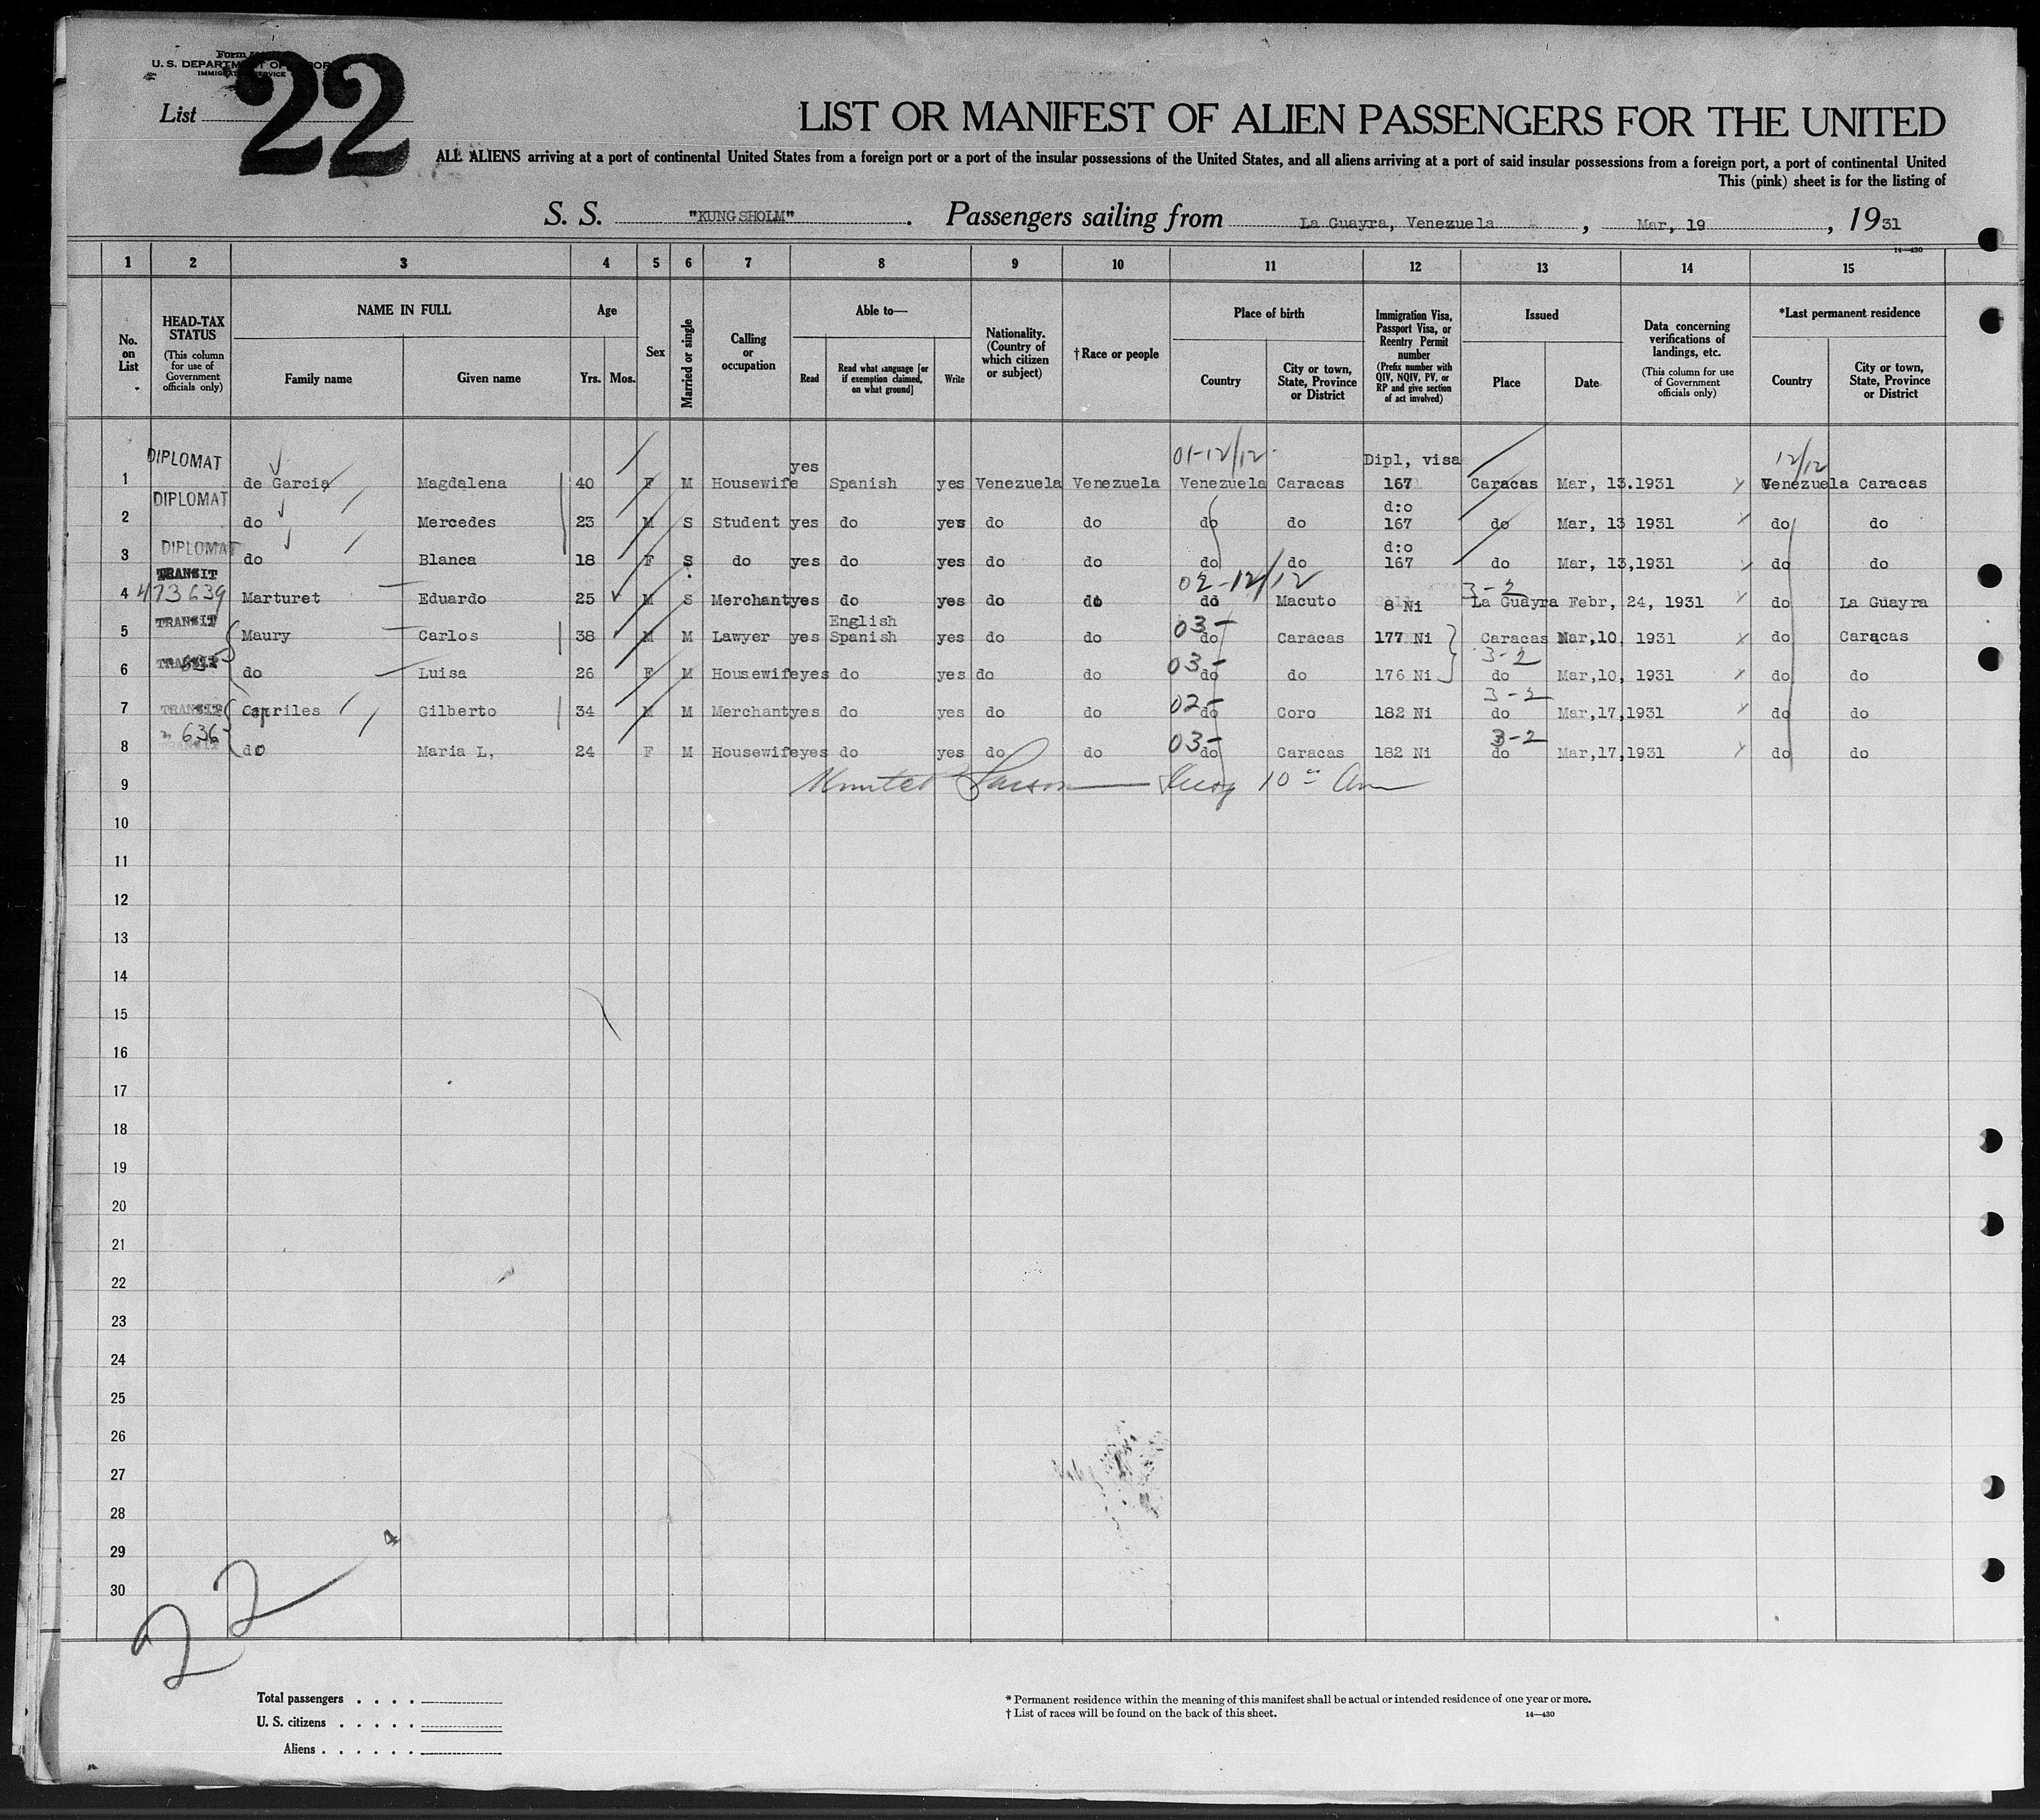 22
U. S. DEPARTMENT OF LABOR
IMMIGRATION SERVICE
List
LIST OR MANIFEST OF ALIEN PASSENGERS FOR THE UNITED
ALL ALIENS arriving at a port of continental United States from a foreign port or a port of the insular possessions of the United States, and all aliens arriving at a port of said insular possessions from a foreign port, a port of continental United
This (pink) sheet is for the listing of
S. S. "KUNGSHOLM". Passengers sailing from La Guayra, Venezuela, Mar, 19, 1931
14—430
1 2 3 4 5 6 7 8 9 10 11 12 13 14 15
No. on List
HEAD-TAX STATUS (This column for use of Government officials only)
NAME IN FULL
Family name Given name
Age
Yrs. Mos.
Sex
Married or single
Calling or occupation
Able to—
Read
Read what language [or if exemption claimed, on what ground]
Write
Nationality. (Country of which citizen or subject)
† Race or people
Place of birth
Country
City or town, State, Province or District
Immigration Visa, Passport Visa, or Reentry Permit number (Prefix number with QIV, NQIV, PV, or RP and give section of act involved)
Issued
Place Date
Data concerning verifications of landings, etc. (This column for use of Government officials only)
*Last permanent residence
Country
City or town, State, Province or District
DIPLOMAT yes 01-12/12 Dipl, visa 12/12
1 de Garcia Magdalena 40 F M Housewife Spanish yes Venezuela Venezuela Venezuela Caracas 167 Caracas Mar, 13.1931 Venezuela Caracas
DIPLOMAT d:o
2 do Mercedes 23 M S Student yes do yes do do do do 167 do Mar, 13 1931 do do
DIPLOMAT d:o
3 do Blanca 18 F S do yes do yes do do do do 167 do Mar, 13,1931 do do
TRANSIT 02-12/12 3-2
4 473639 Marturet Eduardo 25 M S Merchant yes do yes do do do Macuto 8 Ni La Guayra Febr, 24, 1931 do La Guayra
TRANSIT English 03-
5 Maury Carlos 38 M M Lawyer yes Spanish yes do do do Caracas 177 Ni Caracas Mar,10, 1931 do Caracas
TRANSIT 03- 3-2
6 do Luisa 26 F M Housewife yes do yes do do do do 176 Ni do Mar,10, 1931 do do
TRANSIT 02- 3-2
7 Capriles Gilberto 34 M M Merchant yes do yes do do do Coro 182 Ni do Mar,17,1931 do do
636 TRANSIT 03- 3-2
8 do Maria L, 24 F M Housewife yes do yes do do do Caracas 182 Ni do Mar,17,1931 do do
9
10
11
12
13
14
15
16
17
18
19
20
21
22
23
24
25
26
27
28
29
30
22
4
Total passengers . . . .
U. S. citizens . . . . .
Aliens . . . . . .
* Permanent residence within the meaning of this manifest shall be actual or intended residence of one year or more.
† List of races will be found on the back of this sheet. 14—430